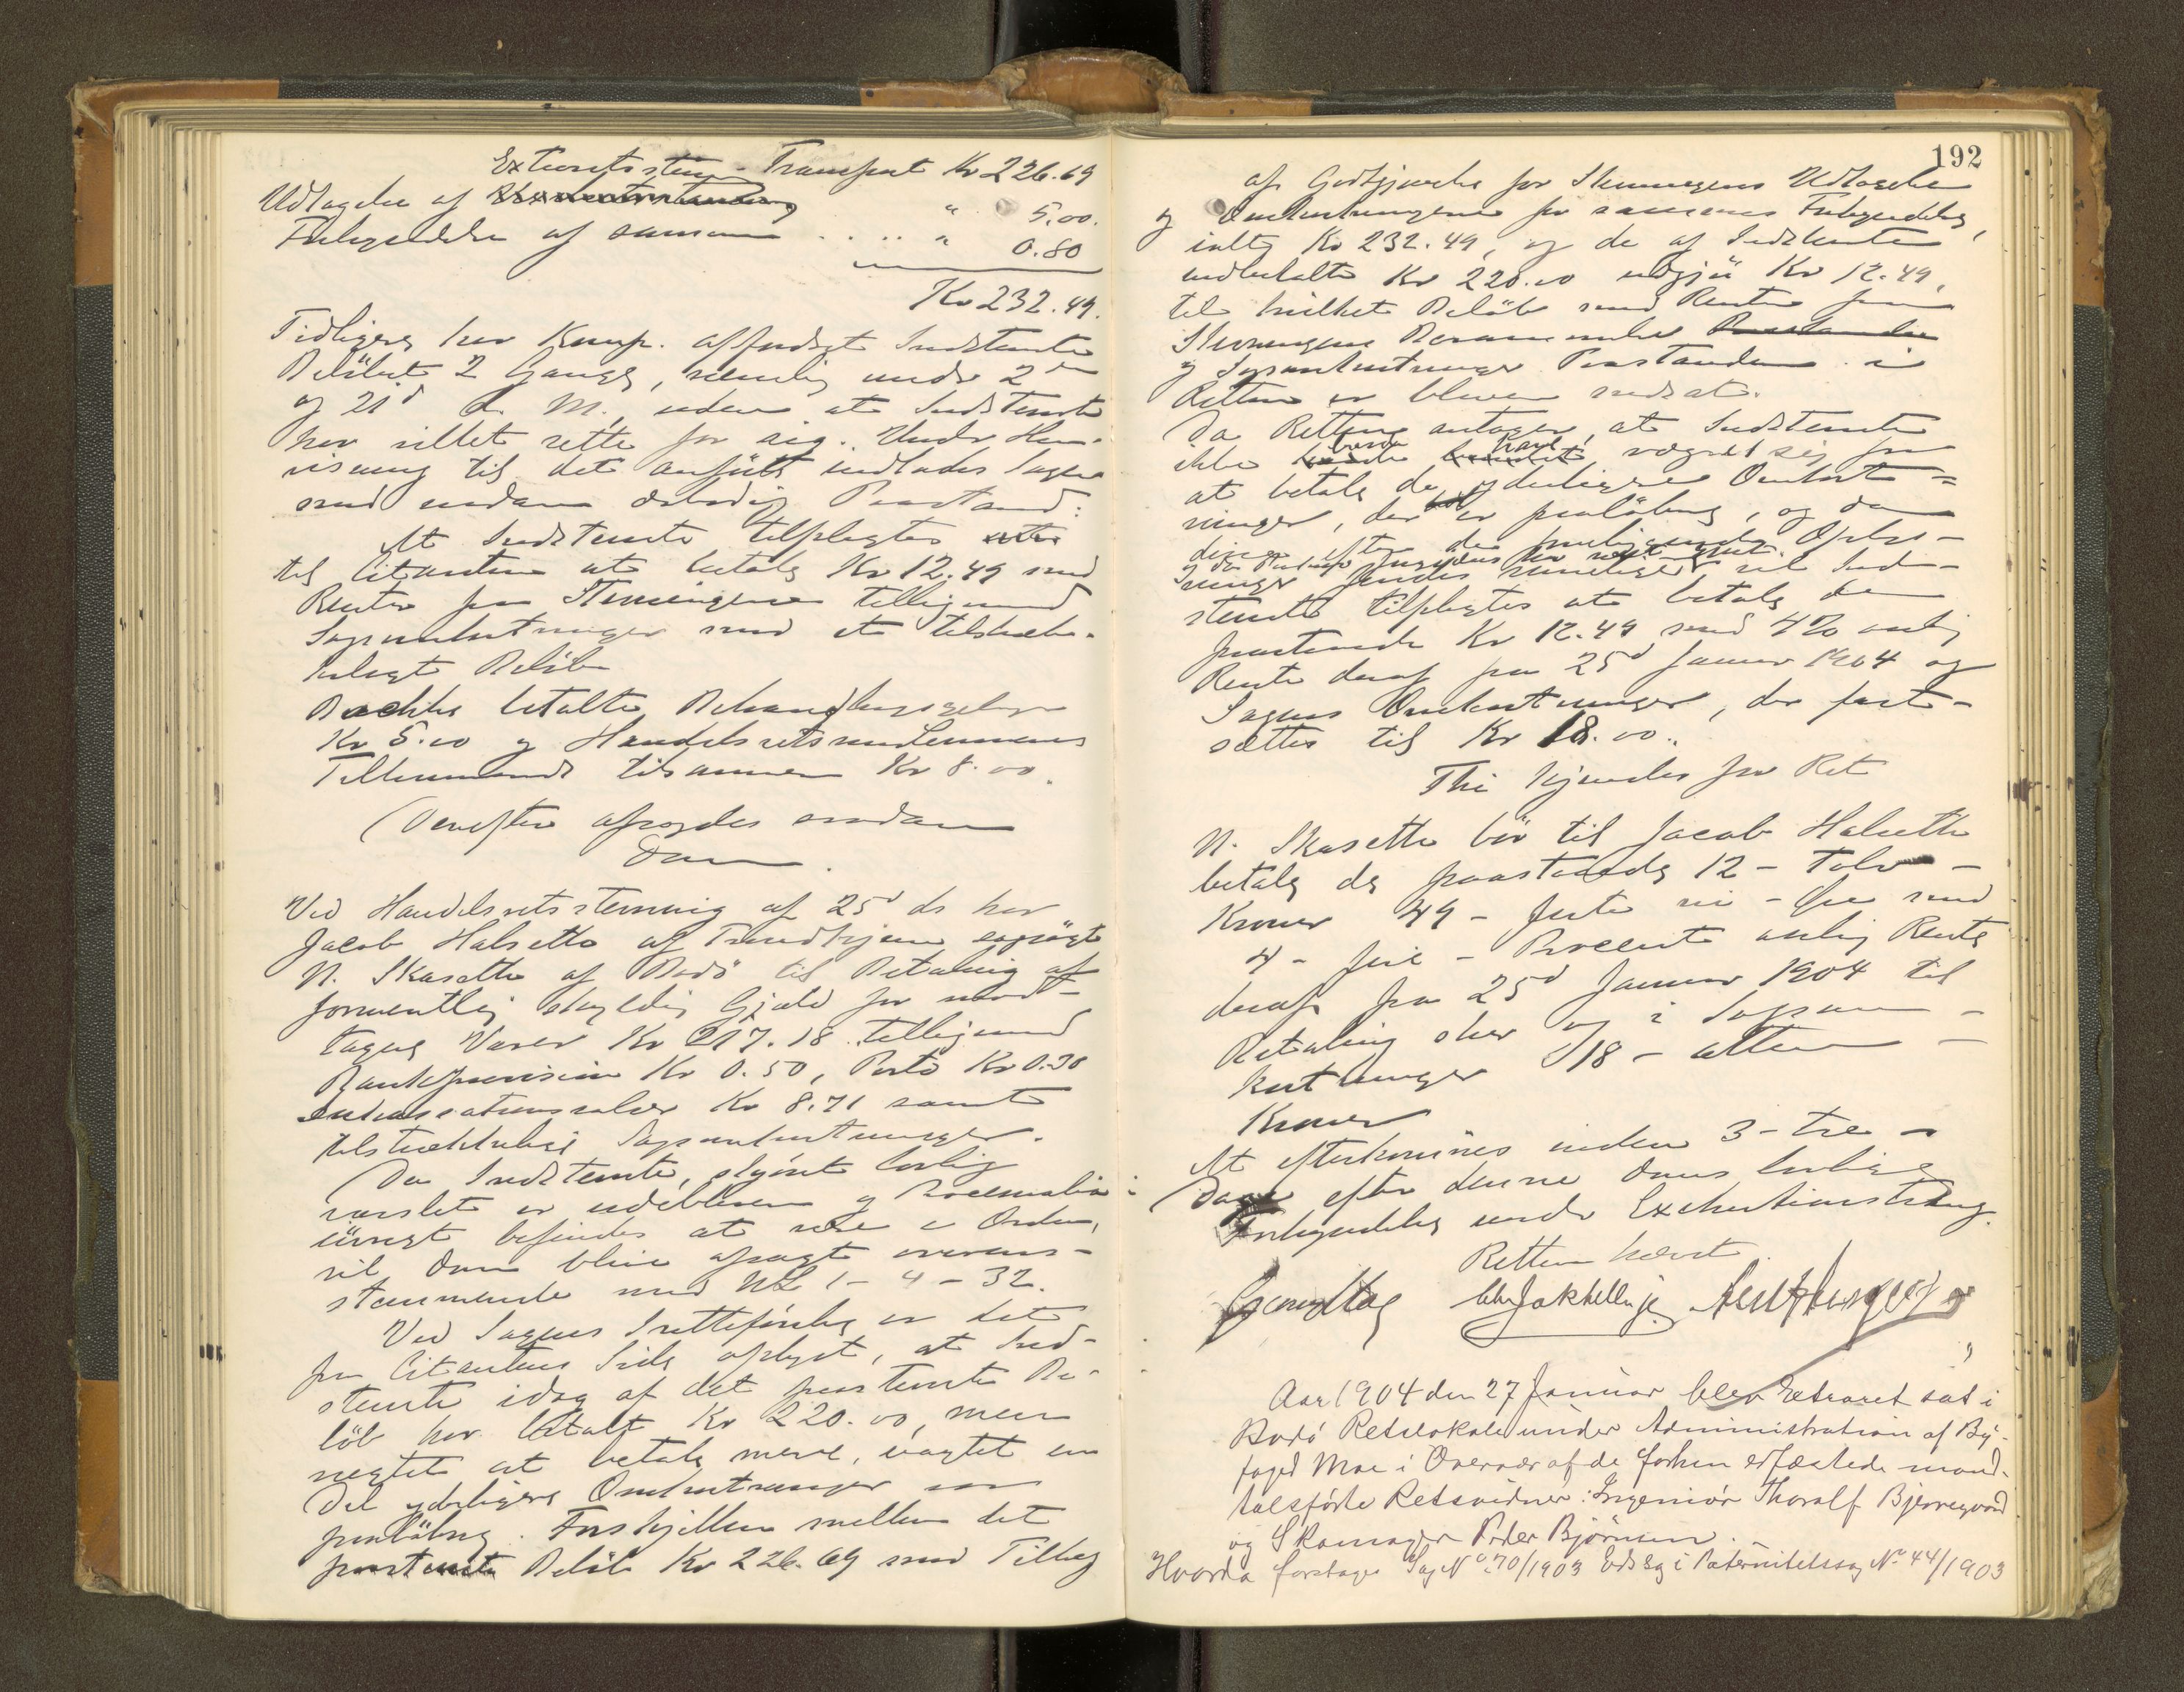 Extraretsstevn - Transport Kr 226.69
Udtagelse af " 5.00.
Forkyndelse af samme .... " 0.80
Kr 232.49.
Tidligere har Komp. affordret Indstevnte
Beløbet 2 Gange, nemlig under 2den
og 21d d. M., uden at Indstevnte
har villet rette for sig. Under Hen-
visning til det anførte indlades Sagen
med saadan ærbødig Paastand:
At Indstevnte tilpligtes
til Citanten at betale Kr 12.49 med
Renter fra Stevningen tilligemed
Sagsomkostninger med et tilstrække-
keligt Beløb
betalte Behandlingsgebyr
Kr 5.00 og Handelsretsmedlemmernes
Tilkommende tilsammen Kr 8.00.
Derefter afsagdes saadan
Dom.
Ved Handelsretsstevning af 25d ds har
Jacob Halseth af Trondhjem sagsøgt
N. Skaseth af Bodö til Betaling af
formentlig skyldig Gjæld for mod-
tagne Varer Kr 217.18 tilligemed
Bankprovision Kr 0.50, Porto Kr 0.30
Inkassationssalær Kr 8.71 samt
tilstrækkelige Sagsomkostninger.
Da Indstevnte, skjønt lovlig
varslet er udebleven og Procesmaterien i
øvrigt befindes at være i Orden,
vil Dom blive afsagt overens-
stemmende med NL 1-4-32.
Ved Sagens Fretteførelse er det
fra Citantens Side oplyst, at Ind-
stevnte idag af det paastevnte Be-
løb har betalt Kr 220.00, men
negtet at betale mere, uagtet en
Del yderligere Omkostninger var
paaløbne. Forskjellen mellem det
paastevnte Beløb Kr 226.69 med Tillæg
192
af Godtgjørelse for Stevningens Udtagelse
og Omkostningerne for sammes Forkyndelse,
ialt Kr 232.49, og de af Indstevnte
indbetalte Kr 220.00 udgjør Kr 12.49,
til hvilket Beløb med Renter fra
Stevningens
og Sagsomkostninger Paastanden i
Retten er bleven nedsat.
Da Retten antager, at Indstevnte
ikke burde have vægret sig for
at betale de yderligere Omkost-
ninger, der var paaløbne, og da
disse efter de foreliggende Oplys-
ninger findes rimelige vil Ind-
stevnte tilpligtes at betale de
paastevnte Kr 12.49 med 4% aarlig
Rente deraf fra 25d Januar 1904 og
Sagens Omkostninger, der fast-
sættes til Kr 18.00.
Thi kjendes for Ret
N. Skaseth bör til Jacob Halseth
betale de paastevnte 12 - Tolv -
Kroner 49 - firti ni - Øre med
4 - fire - Procent aarlig Rente
deraf fra 25d Januar 1904 til
Betaling sker og i Sagsom-
kostninger 18 - atten -
Kroner
At efterkommes inden 3 - tre -
Dage efter denne Doms lovlige
Forkyndelse under Exekutionstvang.
Retten hævet.
Aar 1904 den 27 Januar blev Extraret sat i
Bodö Retslokale under Administration af By-
foged Moe i Overvær af de forhen edfæstede mand-
talsførte Retsvidner: Ingeniör Thoralf Bjerregaard
og Skomager Peder Björnson.
Hvorda foretages Sag No 70/1903 Edslag i Paternitetssag No 44/1903